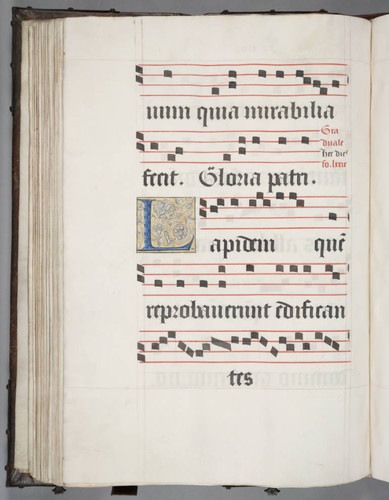 uum quia mirabilia
Gra
duale
hec dies
fo. lxxx
fecit. Gloria patri.
Lapidem quē
reprobauerunt edifican
tes